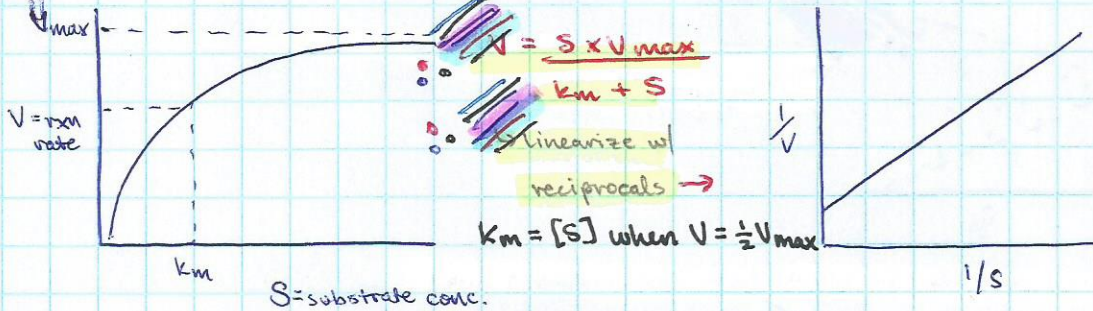 Vmax
V = rxn
rate
Km
S = substrate conc.
V = S x Vmax
Km + S
linearize w/
reciprocals →
Km = [S] when V = ½ Vmax
1/V
1/S